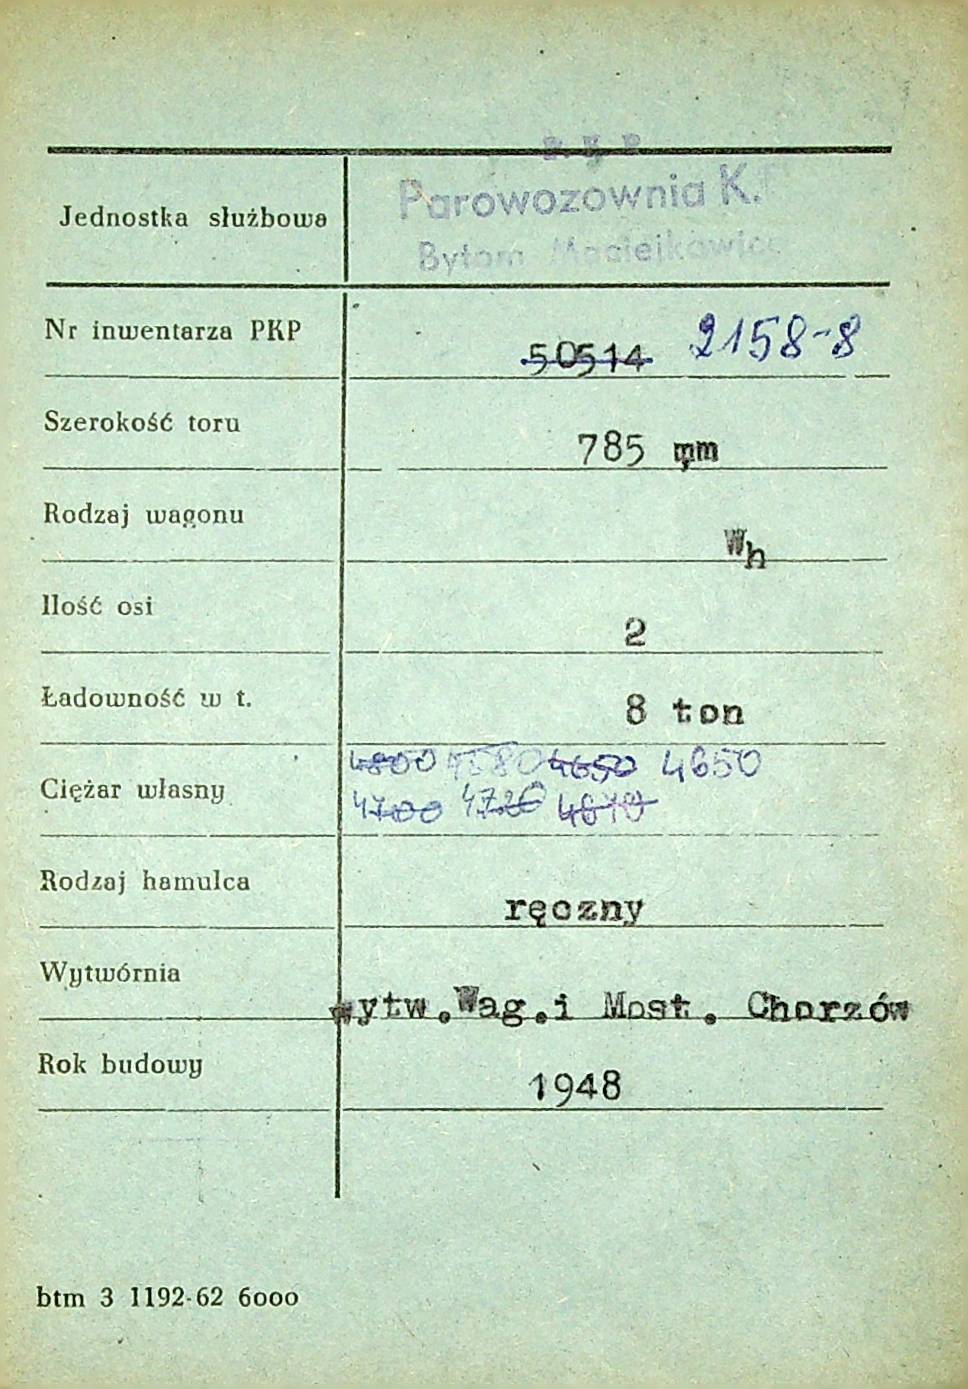 P. K. P.
Parowozownia K.
Jednostka służbowa
Bytom Maciejkowice
Nr inwentarza PKP
50514 2158-8
Szerokość toru
785 mm
Rodzaj wagonu
Wh
Ilość osi
2
Ładowność w t.
8 ton
4800 4580 4650 4650
Ciężar własny
4700 4720 4670
Rodzaj hamulca
ręczny
Wytwórnia
wytw.Wag.i Most. Chorzów
Rok budowy
1948
btm 3 1192-62 6000